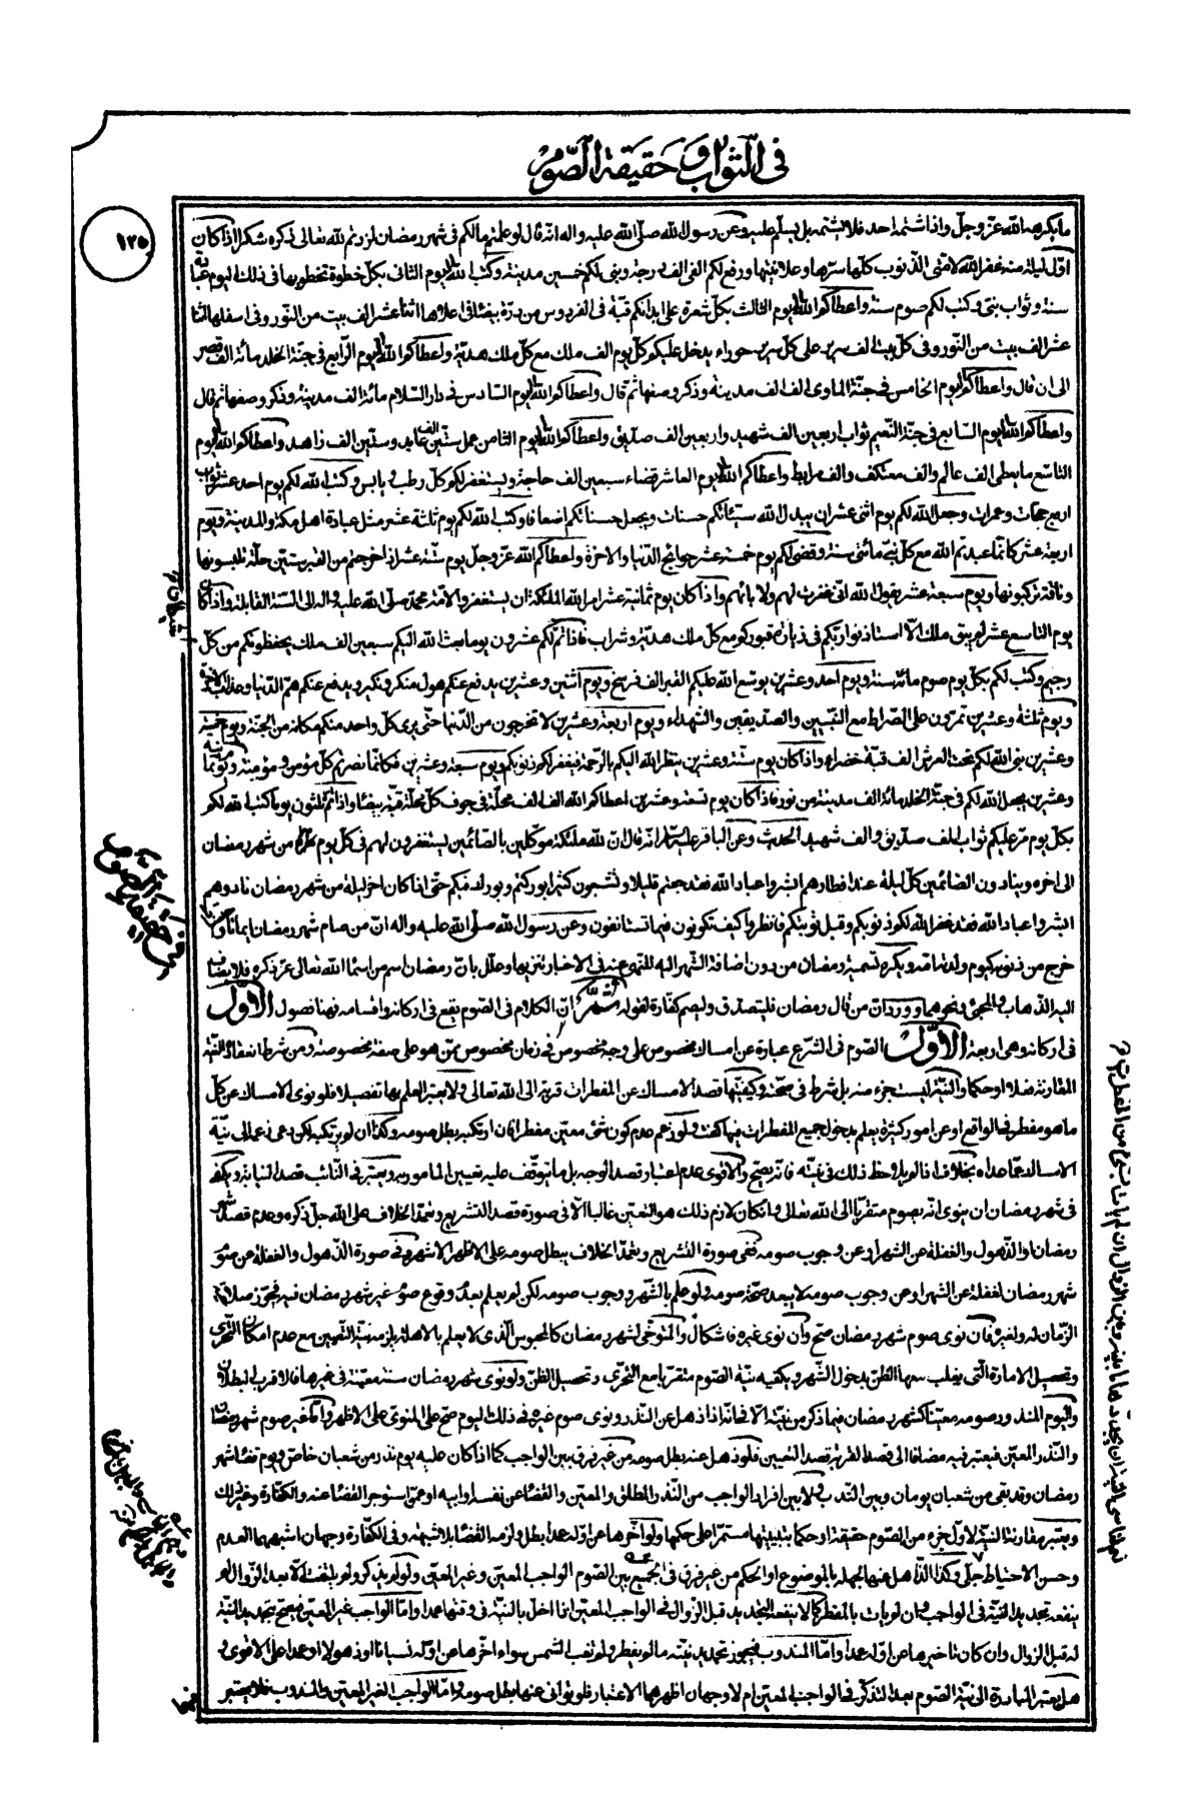 في الثواب و حقيقة الصوم
١٢٥
ما يكرهه الله عز وجل واذا شتمه احد فلا يشتمه بل يسلم عليه وعن رسول الله صلى الله عليه واله انه قال لو علمتم ما لكم في شهر رمضان لزدتم لله تعالى ذكره شكرا اذا كان
اول ليلة منه غفر الله لامتي الذنوب كلها سرها وعلانيتها ورفع لكم الفي الف درجة وبنى لكم خمسين مدينة وكتب الله لكم يوم الثاني بكل خطوة تخطونها في ذلك اليوم عبادة
سنة وثواب نبي وكتب لكم صوم سنة واعطاكم الله يوم الثالث بكل شعرة على ابدانكم قبة في الفردوس من درة بيضاء في اعلاها اثنا عشر الف بيت من النور وفي اسفلها اثنا
عشر الف بيت من النور وفي كل بيت الف سرير على كل سرير حوراء يدخل عليكم كل يوم الف ملك مع كل ملك هدية واعطاكم الله يوم الرابع في جنة الخلد مائة الف قصر
الى ان قال واعطاكم يوم الخامس في جنة الماوى الف الف مدينة وذكر وصفها ثم قال واعطاكم الله يوم السادس في دار السلام مائة الف مدينة وذكر وصفها ثم قال
واعطاكم الله يوم السابع في جنة النعيم ثواب اربعين الف شهيد واربعين الف صديق واعطاكم الله يوم الثامن عمل ستين الف عابد وستين الف زاهد واعطاكم الله يوم
التاسع ما يعطى الف عالم والف معتكف والف مرابط واعطاكم الله يوم العاشر قضاء سبعين الف حاجة ويستغفر لكم كل رطب ويابس وكتب الله لكم يوم احد عشر ثواب
اربع حجات وعمرات وجعل الله لكم يوم اثنى عشر ان يبدل الله سيئاتكم حسنات ويجعل حسناتكم اضعافا وكتب الله لكم يوم ثلثة عشر مثل عبادة اهل مكة والمدينة ويوم
اربعة عشر كانما عبدتم الله مع كل نبي مائتي سنة وقضى لكم يوم خمسة عشر حوائج الدنيا والاخرة واعطاكم الله عز وجل يوم ستة عشر اذا خرجتم من القبر ستين حلة تلبسونها
وناقة تركبونها ويوم سبعة عشر يقول الله اني غفرت لهم ولابائهم واذا كان يوم ثمانية عشر امر الله الملئكة ان يستغفروا لامة محمد صلى الله عليه واله الى السنة القابلة واذا كان
يوم التاسع عشر لم يبق ملك الا استاذنوا ربكم في زيارة قبوركم مع كل ملك هدية وشراب فاذا تم لكم عشرون يوما بعث الله اليكم سبعين الف ملك يحفظونكم من كل
رجيم وكتب لكم بكل يوم صوم مائة سنة ويوم احد وعشرين يوسع الله عليكم القبر الف فرسخ ويوم اثنين وعشرين يدفع عنكم هول منكر ونكير ويدفع عنكم هم الدنيا وعذاب الاخرة
ويوم ثلثة وعشرين تمرون على الصراط مع النبيين والصديقين والشهداء ويوم اربعة وعشرين لا تخرجون من الدنيا حتى يرى كل واحد منكم مكانه من الجنة ويوم خمسة
وعشرين بنى الله لكم تحت العرش الف قبة خضراء واذا كان يوم ستة وعشرين ينظر الله اليكم بالرحمة فيغفر لكم ذنوبكم ويوم سبعة وعشرين فكانما نصرتم كل مؤمن ومؤمنة ويوم ثمانية
وعشرين يجعل الله لكم في جنة الخلد مائة الف مدينة من نور فاذا كان يوم تسعة وعشرين اعطاكم الله الف الف محلة في جوف كل محلة قبة بيضاء واذا تم ثلثون يوما كتب الله لكم
بكل يوم مر عليكم ثواب الف صديق والف شهيد الحديث وعن الباقر عليه السلام انه قال ان لله ملئكة موكلين بالصائمين يستغفرون لهم في كل يوم من شهر رمضان
الى اخره وينادون الصائمين كل ليلة عند افطارهم ابشروا عباد الله فقد جعتم قليلا وتشبعون كثيرا بوركتم وبورك فيكم حتى اذا كان اخر ليلة من شهر رمضان نادوهم
ابشروا عباد الله فقد غفر الله لكم ذنوبكم وقبل توبتكم فانظروا كيف تكونون فيما تستانفون وعن رسول الله صلى الله عليه واله ان من صام شهر رمضان ايمانا واحتسابا
خرج من ذنوبه كيوم ولدته امه ويكره تسمية رمضان من دون اضافة الشهر اليه للنهي عنه في الاخبار تنزيها وعلل بان رمضان اسم من اسماء الله تعالى عز ذكره فلا يضاف
اليه الذهاب والمجئ ونحوهما وورد ان من قال رمضان فليتصدق وليصم كفارة لقوله ثم ان الكلام في الصوم يقع في اركانه واقسامه فهنا فصول الاول
في اركانه وهي اربعة الاول الصوم في الشرع عبارة عن امساك مخصوص على وجه مخصوص في زمان مخصوص ممن هو على صفة مخصوصة ومن شرط انعقاده النية
المقارنة فعلا او حكما والنية ليست جزء منه بل شرط في صحته وكيفيتها قصد الامساك عن المفطرات قربة الى الله تعالى ولا يعتبر العلم بها تفصيلا فلو نوى الامساك عن كل
ما هو مفطر في الواقع او عن امور كثيرة يعلم بدخول جميع المفطرات فيها كفت ولو زعم عدم كون شئ معين مفطرا فان ارتكبه بطل صومه وكذا ان لم يرتكبه لكن
الامساك عما عداه بخلاف اذا لم يلاحظ ذلك في نيته فانه يصح والاقوى عدم اعتبار قصد الوجه بل ما يتوقف عليه تعيين المامور به ويعتبر في النائب قصد النيابة ويكفي
في شهر رمضان ان ينوى انه يصوم متقربا الى الله تعالى وان كان لازم ذلك هو التعين غالبا الا في صورة قصد التشريع وتعمد الخلاف على الله جل ذكره وعدم قصد شهر
رمضان او الذهول والغفلة عن الشهر او عن وجوب صومه ففي صورة التشريع وتعمد الخلاف يبطل صومه على الاظهر الاشهر وفي صورة الذهول والغفلة عن صوم
شهر رمضان لغفلة عن الشهر او عن وجوب صومه لا يبعد صحة صومه ولو علم بالشهر ووجوب صومه لكن لم يعلم بعدم وقوع صوم غير شهر رمضان فيه
الزمان له ولغيره فان نوى صوم شهر رمضان صح وان نوى غيره فاشكال والمتوخى لشهر رمضان كالمحبوس الذي لا يعلم بالاهلة يلزمه نية التعيين مع عدم امكان التحرى
وتحصيل الامارة التي يغلب معها الظن بدخول الشهر ويكفيه نية الصوم متقربا مع التحرى وتحصيل الظن ولو نوى شهر رمضان سنة معينة في غيرها فالاقرب البطلان
واليوم المنذور صومه معينا كشهر رمضان فيما ذكر من نيته الا فيما اذا ذهل عن النذر ونوى صوم غيره في ذلك اليوم صح على المنوى على الاظهر واما غير صوم شهر رمضان
والنذر المعين فيعتبر فيه مضافا الى قصد القربة قصد التعيين فلو ذهل عنه بطل صومه من غير فرق بين الواجب كما اذا كان عليه يوم نذر من شعبان خاص ويوم قضاء شهر
رمضان وقد بقي من شعبان يومان وبين الندب ولا بين افراد الواجب من النذر المطلق والمعين والقضاء عن نفسه او ابيه او عمن استوجر القضاء عنه والكفارة وغير ذلك
ويعتبر مقارنة النية لاول جزء من الصوم حقيقة او حكما بتبييتها مستمرا على حكمها ولو اخرها عن اوله عمدا بطل ولزمه القضاء بلا شبهة وفي الكفارة وجهان اشبههما العدم
وحسن الاحتياط جلي وكذا الذاهل عنها لجهله بالموضوع او الحكم من غير فرق في الجميع بين الصوم الواجب المعين وغير المعين ولو لم يذكر ولم يلتفت الا بعد الزوال لم
ينفعه تجديد النية في الواجب وان لم يات بالمفطر كما لا ينفعه التجديد قبل الزوال في الواجب المعين اذا اخل بالنية في وقتها عمدا واما الواجب غير المعين فيصح تجديد النية
له قبل الزوال وان كان تاخيرها عن اوله عمدا واما المندوب فيجوز تجديد نيته ما لم يفطر ولم تغب الشمس سواء اخرها عن اوله نسيانا او ذهولا او عمدا على الاقوى و
هل يعتبر المبادرة الى نية الصوم بعد التذكر في الواجب المعين ام لا وجهان اظهرهما الاعتبار فلو توانى عنها بطل صومه واما الواجب الغير المعين والمندوب فلا يعتبر
فيها